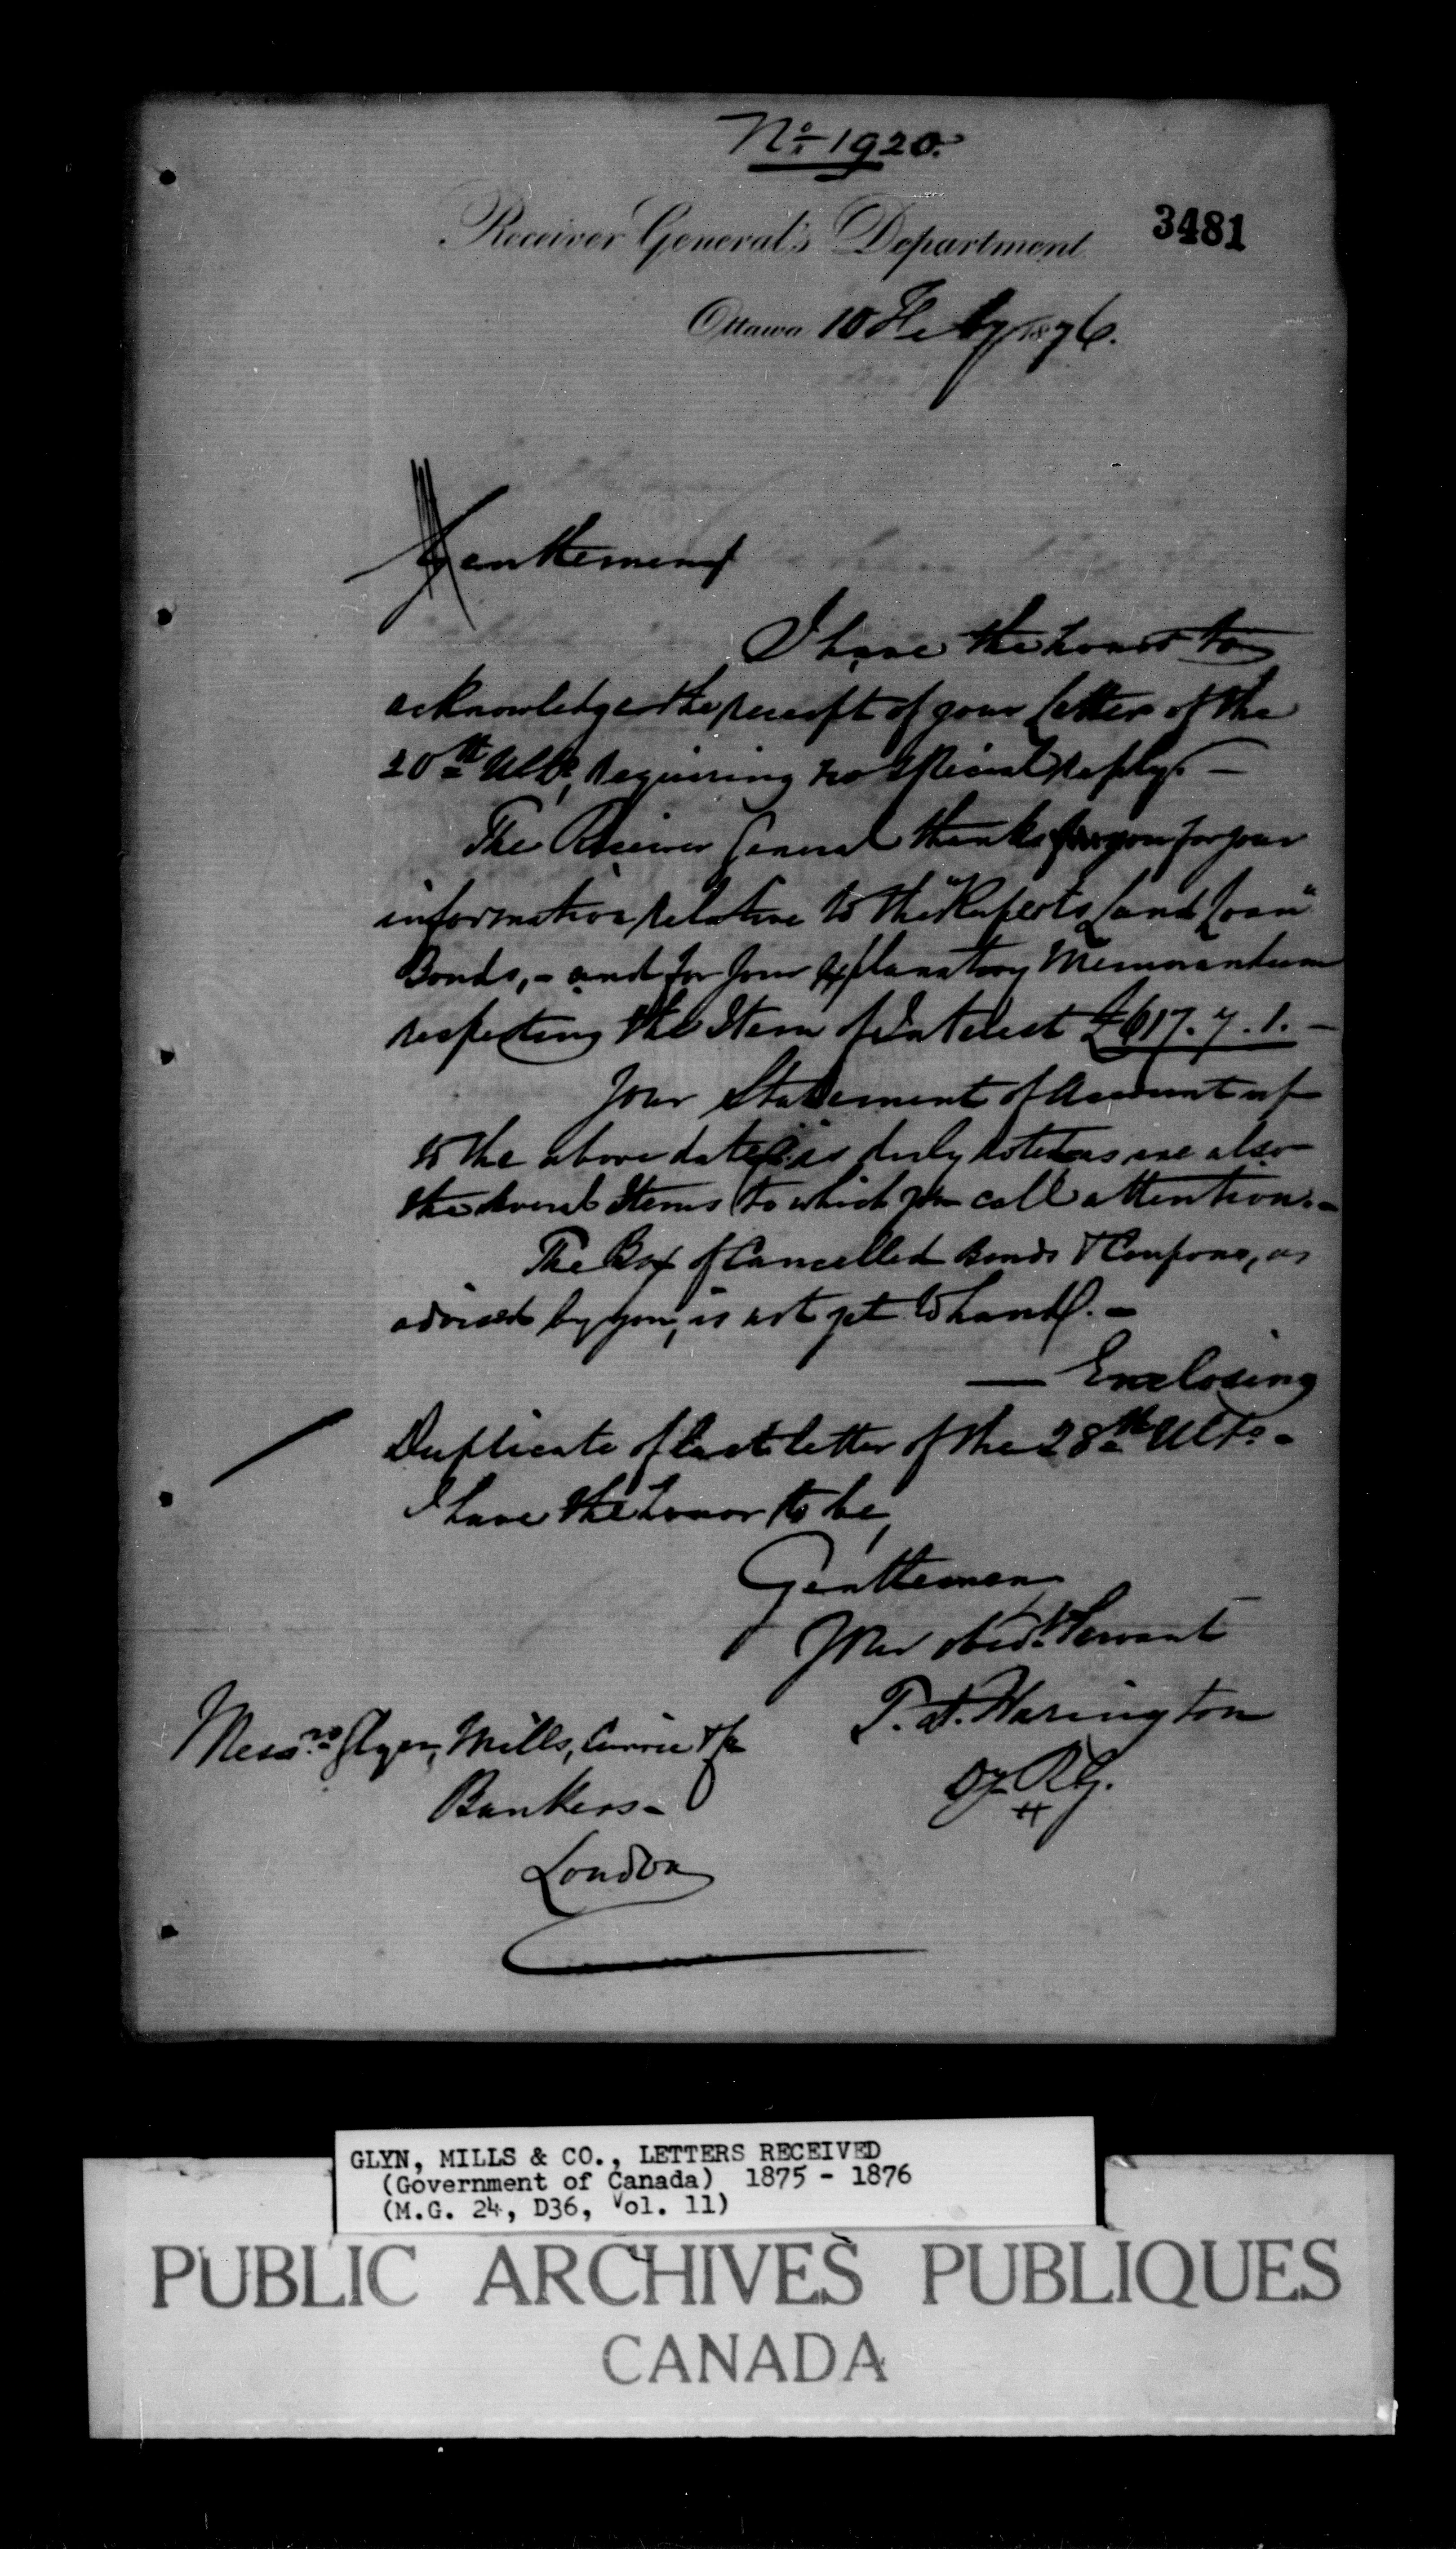 No. 1920.
Receiver General's Department
3481
Ottawa 10 Feby 1876.
Gentlemen,
I have the honor to
acknowledge the receipt of your letter of the
20th Ulto, requiring no special reply. —
The Receiver General thanks you for your
information relative to the "Ruperts Land Loan"
Bonds, - and for your explanatory Memorandum
respecting the Item of Interest £617. 7. 1. —
Your Statement of Account up
to the above date is duly noted as are also
the several Items to which you call attention. -
The Box of Cancelled Bonds & Coupons, as
advised by you, is not yet to hand. -
— Enclosing
Duplicate of last letter of the 28th Ulto. -
I have the honor to be,
Gentlemen
Your obedt Servant
T. D. Harington
Dy R G.
Messrs Glyn, Mills, Currie & Co
Bankers -
London
GLYN, MILLS & CO., LETTERS RECEIVED
(Government of Canada) 1875 - 1876
(M.G. 24, D36, Vol. 11)
PUBLIC ARCHIVES PUBLIQUES
CANADA